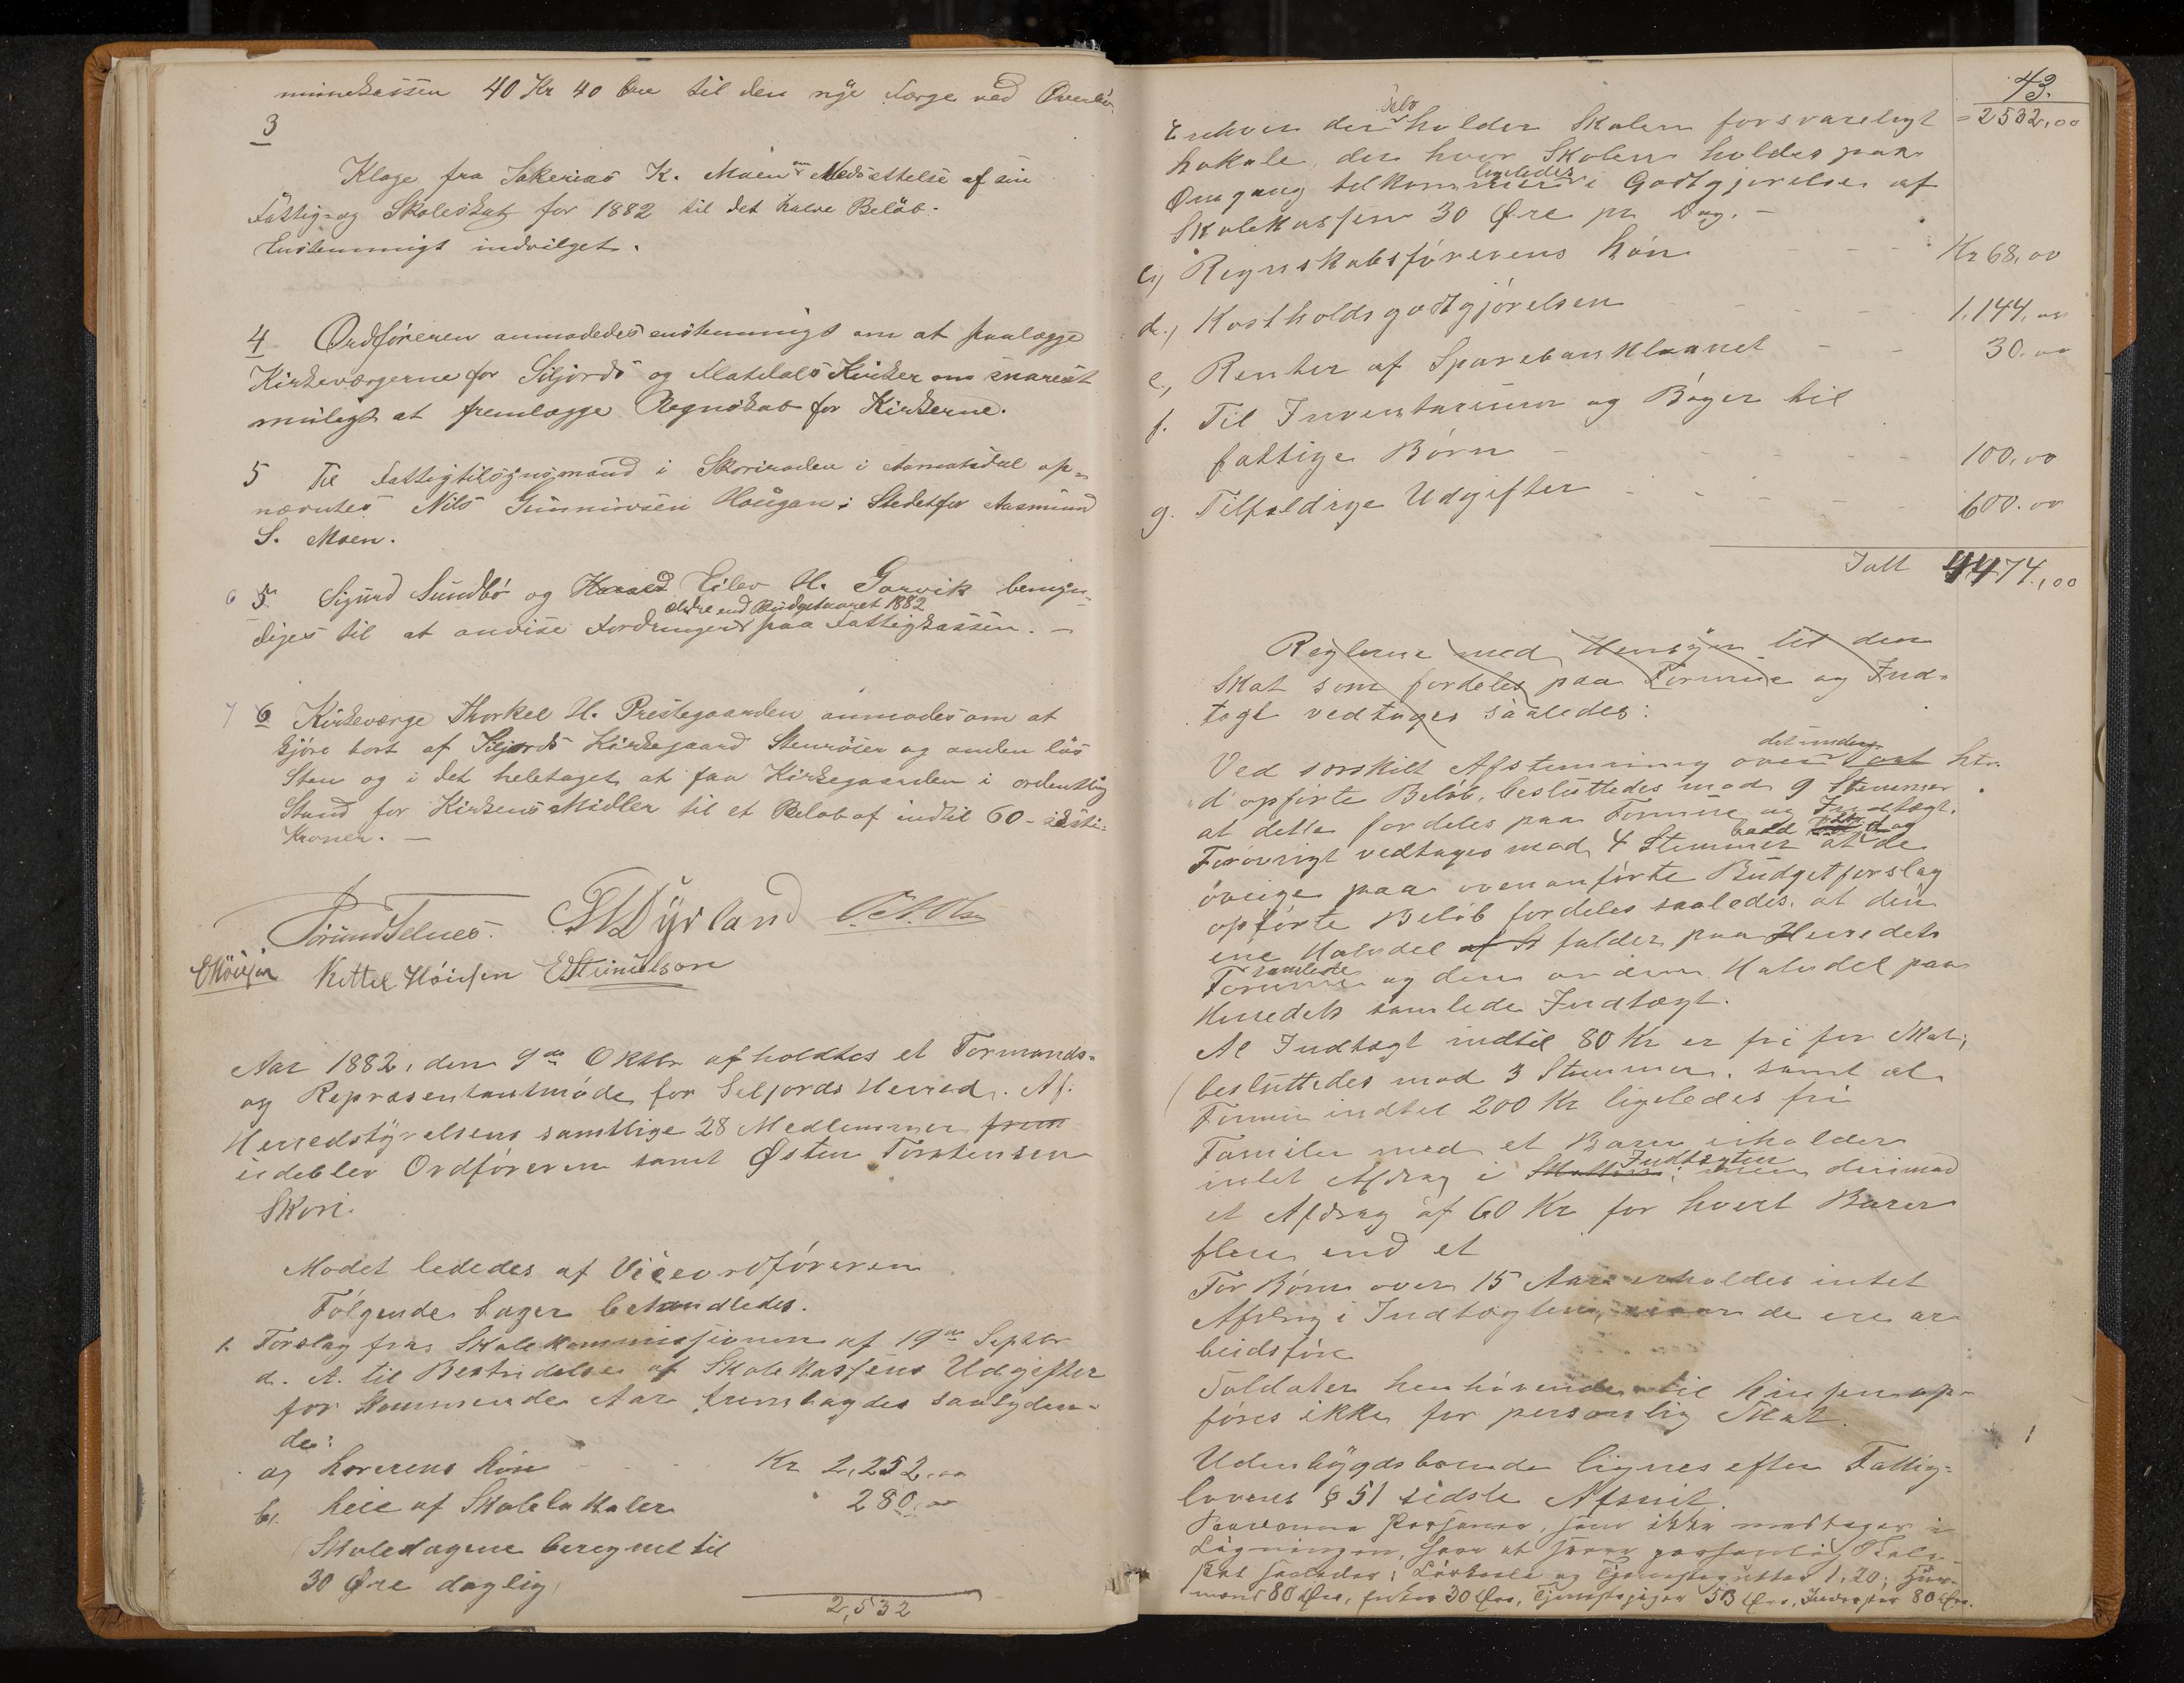 minekassen 40 Kr 40 Øre til den nye Færge ved Øverbø.
3
Klage fra Sakerias K. Moen om Nedsættelse af sin
Fattig- og Skoleskat for 1882 til det halve Beløb.
Enstemmigt indvilget.
4 Ordføreren anmodedes enstemmigt om at paalægge
Kirkeværgerne for Siljords og Flatdals Kirker om snarest
muligt at fremlægge Regnskab for Kirkerne.
5 Til Fattigtilsynsmand i Skoriroden i Aamotsdal op-
nævntes Nils Gunnivsen Haugan i Stedetfor Aasmund
S. Moen.
6 5 Sigurd Sundbö og Harald Eilev H. Garvik bemyn-
ældre end Budgetaaret 1882
diges til at anvise Fordringer paa Fattigkassen. —
7 6 Kirkeværge Thorkel H. Prestegaarden anmodes om at
kjöre bort af Siljords Kirkegaard Stenröser og anden lös
Sten og i det heletaget at faa Kirkegaarden i ordentlig
Stand for Kirkens Midler til et Belöb af indtil 60 - seksti-
Kroner. —
Törund Telnes. T H Dÿrland O. A. Olsen
E Höijsen Kittel Höiesen E Stiunulson
Aar 1882, den 9de Oktbr afholdtes et Formands-
og Repræsentantmøde for Seljords Herred. Af
Herredstÿrelsens samtlige 28 Medlemmer frem
udeblev Ordføreren samt Østen Torstensen
Skori.
Mødet lededes af Viceordføreren
Følgende Sager behandledes.
1. Forslag fra Skolekommissionen af 19de Septbr
d. A. til Bestridelse af Skolekassens Udgifter
for kommende Aar fremlagdes saalyden-
de:
a) Lærerens Løn - - Kr 2,252,00
b). Leie af Skolelokaler 280,00
(Skoledagene beregnet til
30 Øre daglig,
2,532
43.
Enhver der selv holder Skolen forsvareligt = 2532,00
Lokale, der hvor Skolen holdes paa
Omgang tilkommer ligeledes i Godtgjørelse af
Skolekassen 30 Øre pr Dag. —
c) Regnskabsførerens Løn - - - Kr 68,00
d., Kostholdsgodtgjørelsen - - 1,144,00
e., Renter af Sparebanklaanet - - 30.00
f. Til Inventarium og Bøger til
fattige Børn - - - - 100,00
g. Tilfældige Udgifter - - - - 600.00
Ialt 4474,00
Reglerne med Hensÿn til den
Skat som fordeles paa Formue og Ind-
tægt vedtages saaledes:
Ved særskilt Afstemning over det under Post litr.
d opførte Beløb, besluttedes mod 9 Stemmer
at dette fordeles paa Formue og Indtægt.
Forøvrigt vedtages mod 4 Stemmer at de
øvrige paa ovenanførte Budgetforslag
opførte Beløb fordeles saaledes, at den
ene Halvdel af H falder paa Herredets
samlede
Formue og den anden Halvdel paa
Herredets samlede Indtægt.
Al Indtægt indtil 80 Kr er fri for Skat,
(besluttedes mod 3 Stemmer, samt at
Formue indtil 200 Kr ligeledes fri
Familer med et Barn erholder
intet Afdrag i Skatten Indtægten; men derimod
et Afdrag af 60 Kr for hvert Barn
flere end et
For Børn over 15 Aar erholdes intet
Afdrag i Indtægten, naar de ere ar
beidsføre
Soldater henhørende til Linjen op-
føres ikke for personlig Skat.
Udenbÿgdsboende lignes efter Fattig-
lovens § 51 sidste Afsnit.
Saadanne Personer, som ikke medtages i
Ligningen, saa at svare personlig Skole-
skat saaledes; Løskarle og Tjenestegutter 1,20; Huus-
mænd 80 Øre, Enker 30 Øre, Tjenestepiger 53 Øre, Inderster 80 Øre.